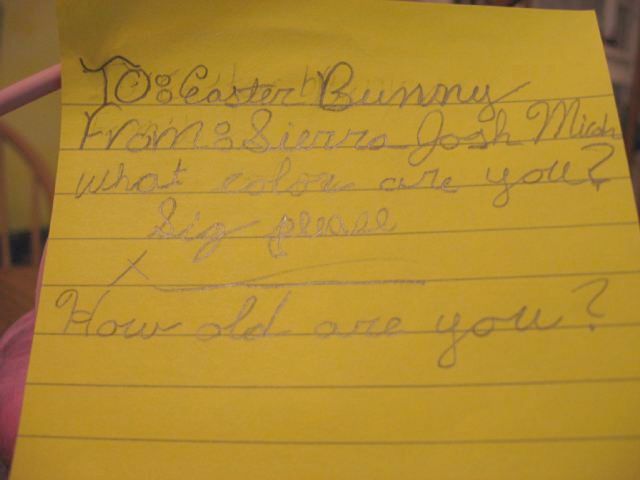 To: Easter Bunny
From: Sierra Josh Micah
what color are you?
Sig please
X
How old are you?